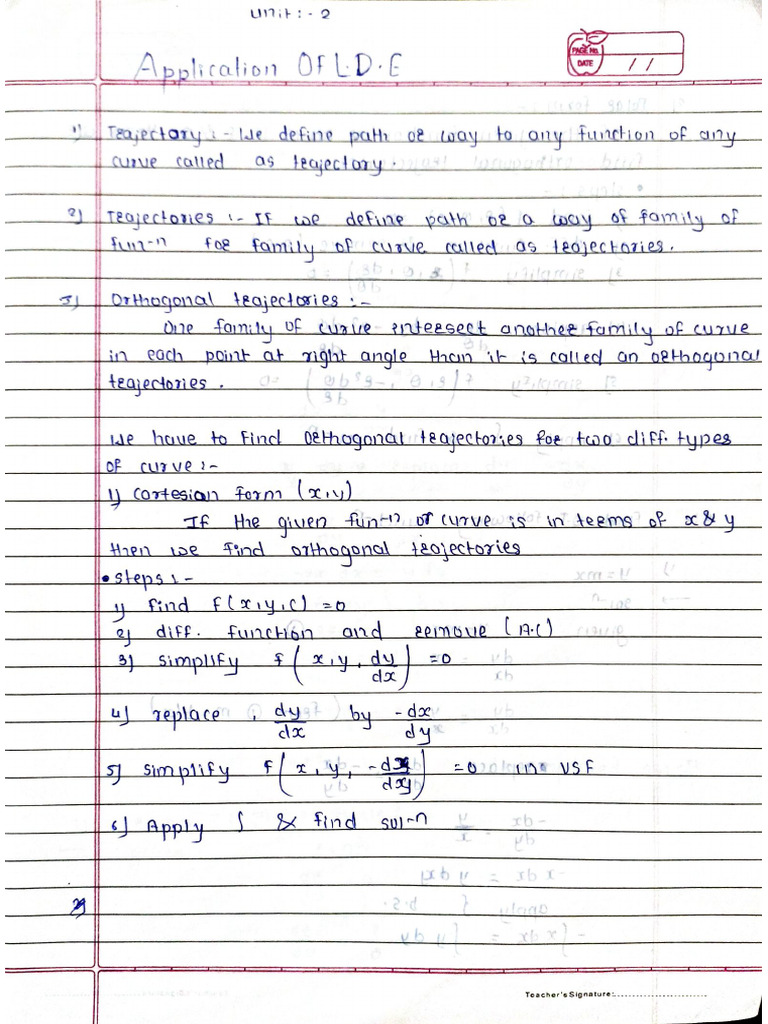 Unit :- 2
Application Of L.D.E
PAGE No.
DATE / /
1) Trajectory :- We define path or way to any function of any
curve called as trajectory.
2) Trajectories :- If we define path or a way of family of
fun-n for family of curve called as trajectories.
3) Orthogonal trajectories :-
One family of curve intersect another family of curve
in each point at right angle than it is called an orthogonal
trajectories.
We have to find orthogonal trajectories for two diff. types
of curve :-
1) cartesian form (x,y)
If the given fun-n or curve is in teems of x & y
then we find orthogonal trajectories
• steps :-
1) find f(x,y,c) =0
2) diff. function and remove (A.C)
3) simplify f(x, y, dy/dx) =0
4) replace dy/dx by -dx/dy
5) simplify f(x, y, -dx/dy) =0 in VSF
6) Apply ∫ & find sol-n
Teacher's Signature: